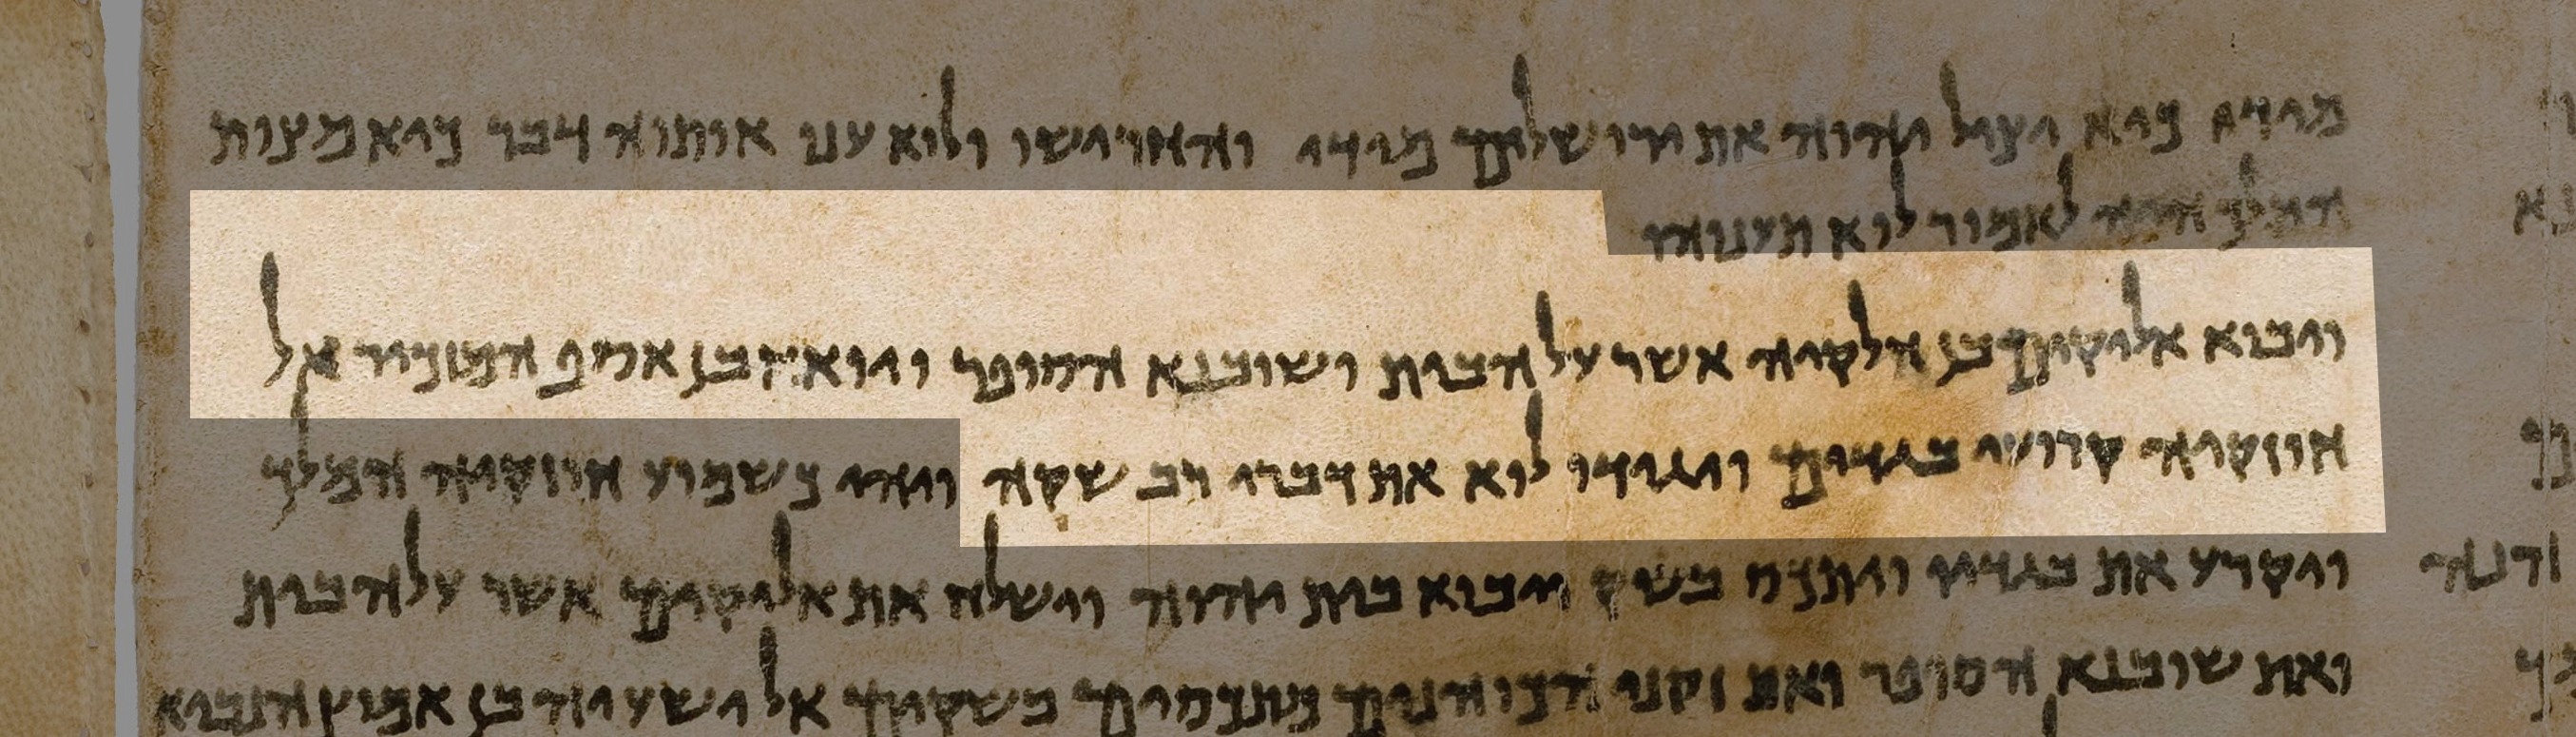 מידי כיא יציל יהוה את ירושלים מידי והחרישו ולוא ענו אותוה דבר כיא מצות
המלך היאה לאמור לוא תענוהו
ויבוא אליקים בן חלקיה אשר על הבית ושובנא הסופר ויואח בן אסף המזכיר אל
חיזקיה קרועי בגדים ויגידו לוא את דברי רב שקה ויהי כשמוע חיזקיה המלך
ויקרע את בגדיו ויתכס בשק ויבוא בית יהוה וישלח את אליקים אשר על הבית
ואת שובנא הסופר ואת זקני הכוהנים מתכסים בשקים אל ישעיה בן אמוץ הנביא